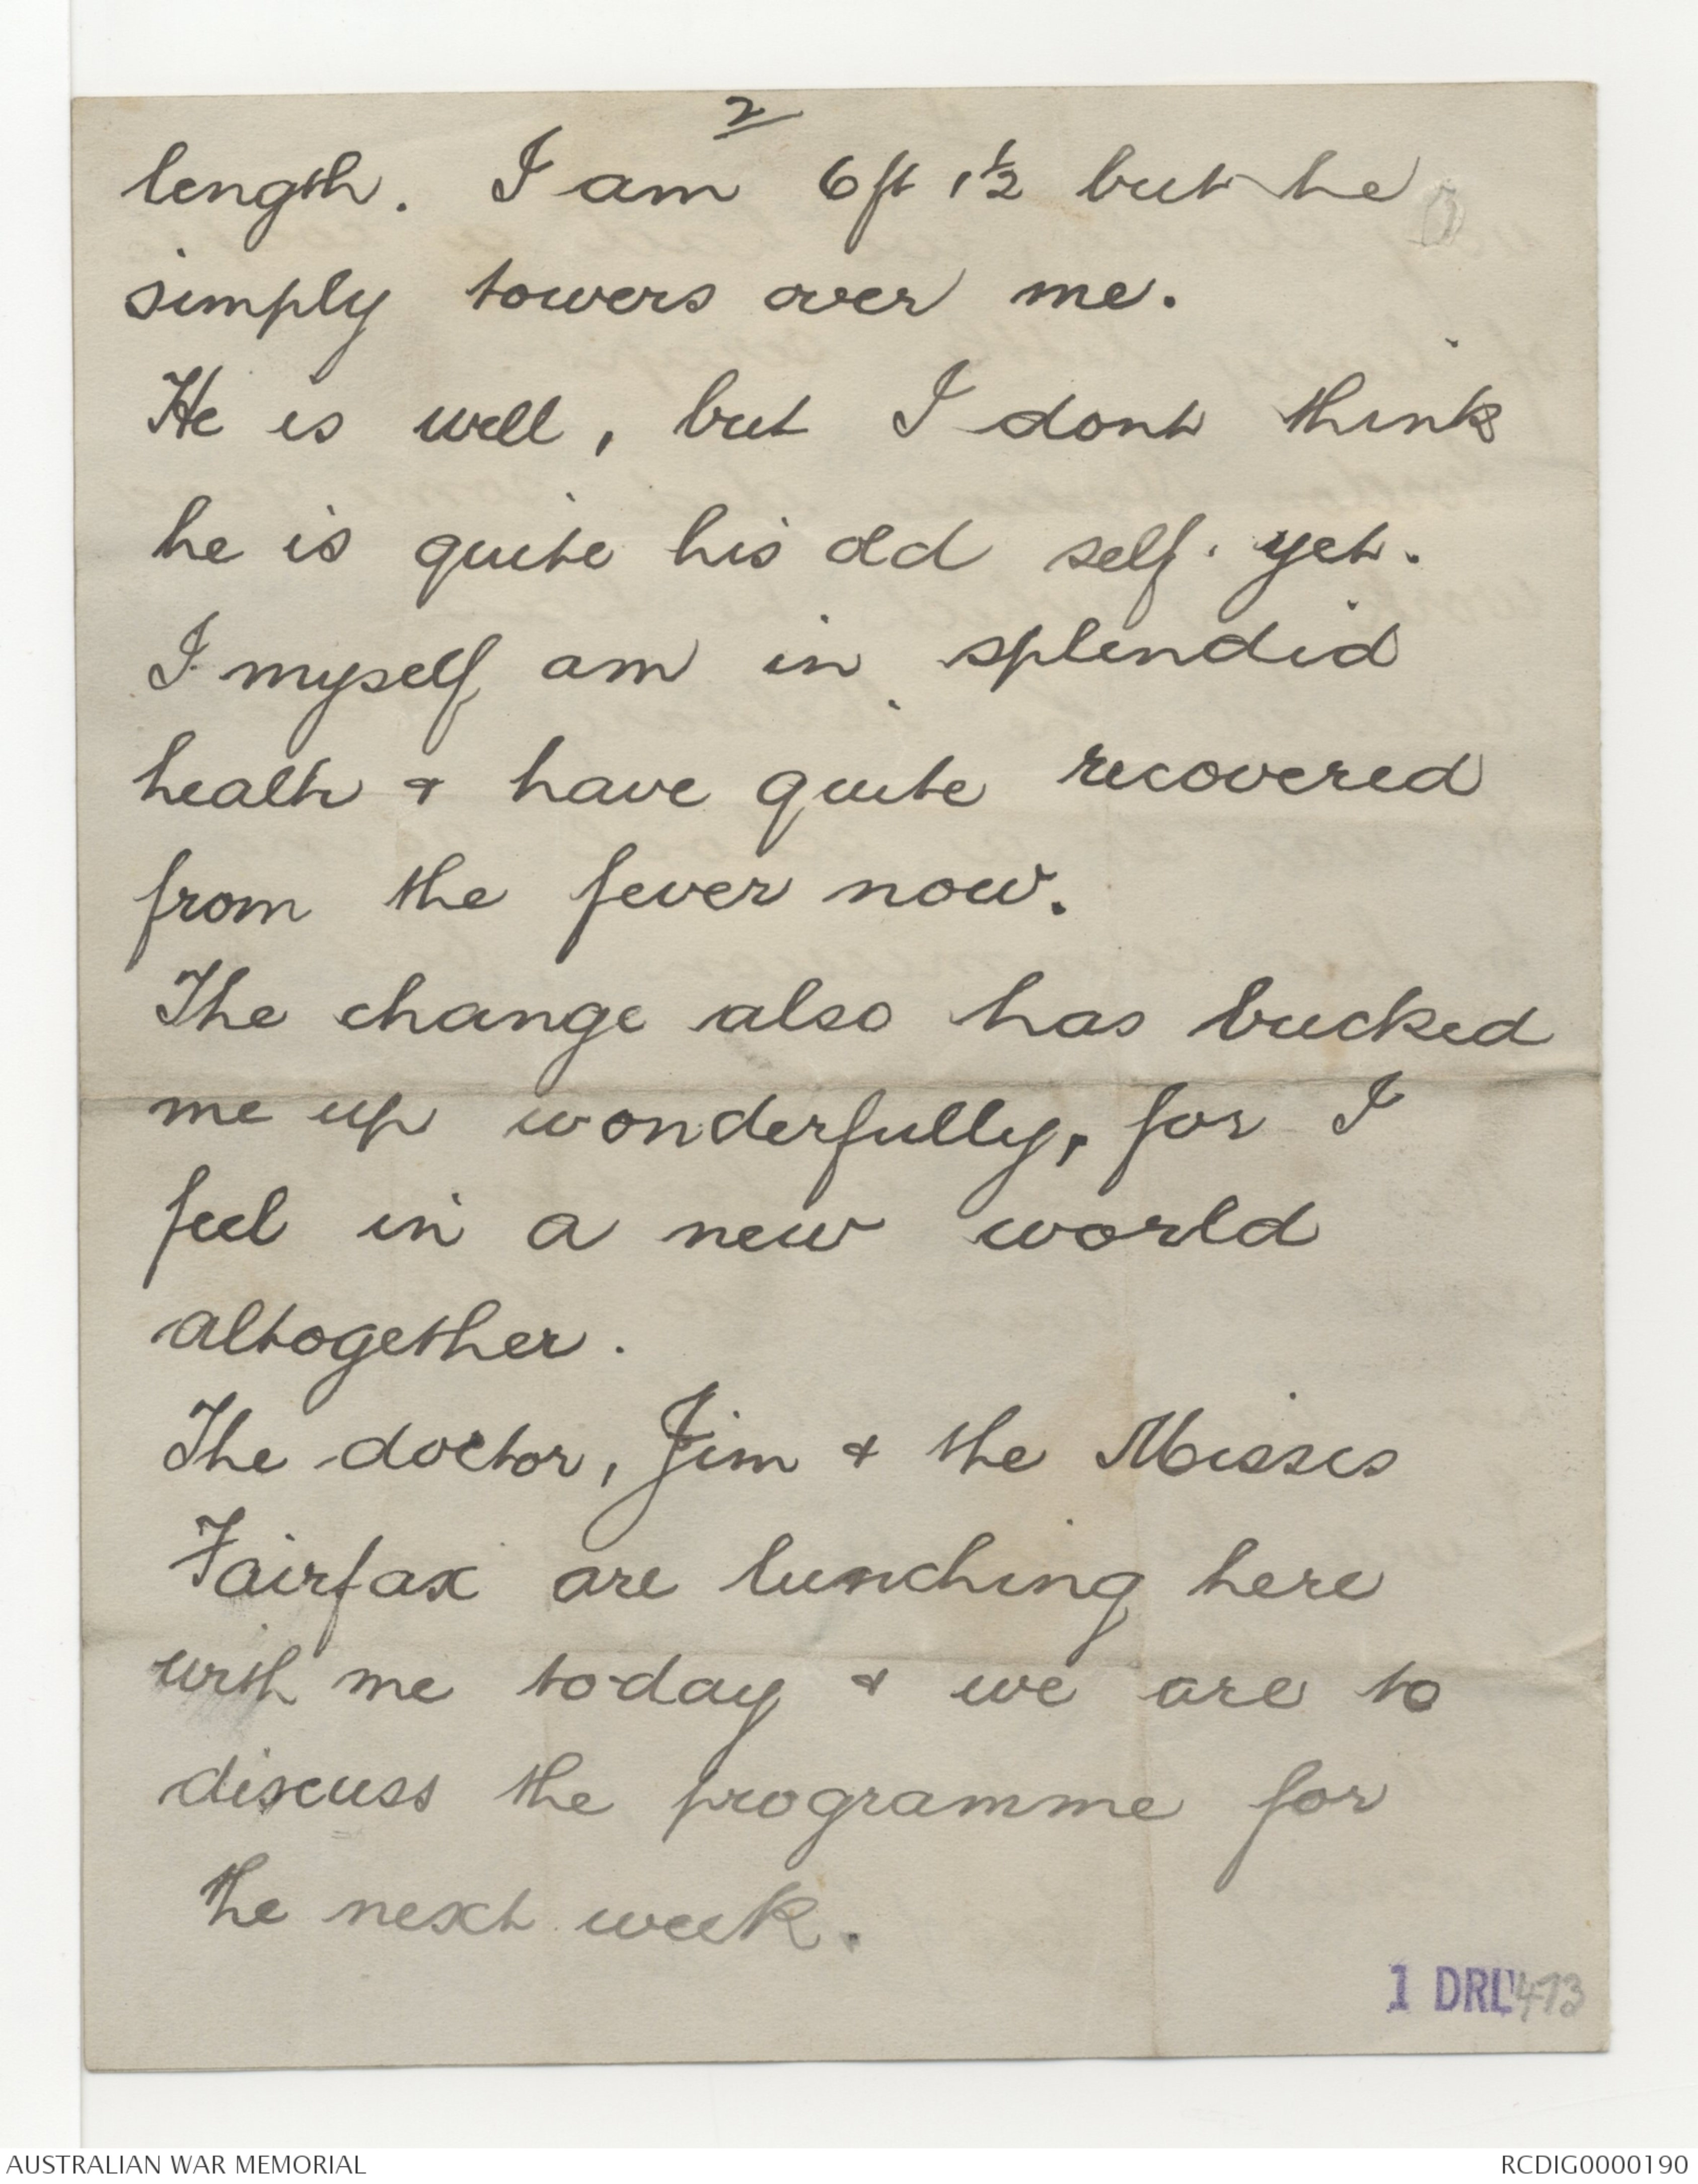 2
length. I am 6ft 1½ but he
simply towers over me.
He is well, but I dont think
he is quite his old self. yet.
I myself am in splendid
health & have quite recovered
from the fever now.
The change also has bucked
me up wonderfully, for I
feel in a new world
altogether.
The doctor, Jim & the Misses
Fairfax are lunching here
with me to-day & we are to
discuss the programme for
the next week.
1 DRL 473
AUSTRALIAN WAR MEMORIAL
RCDIG0000190